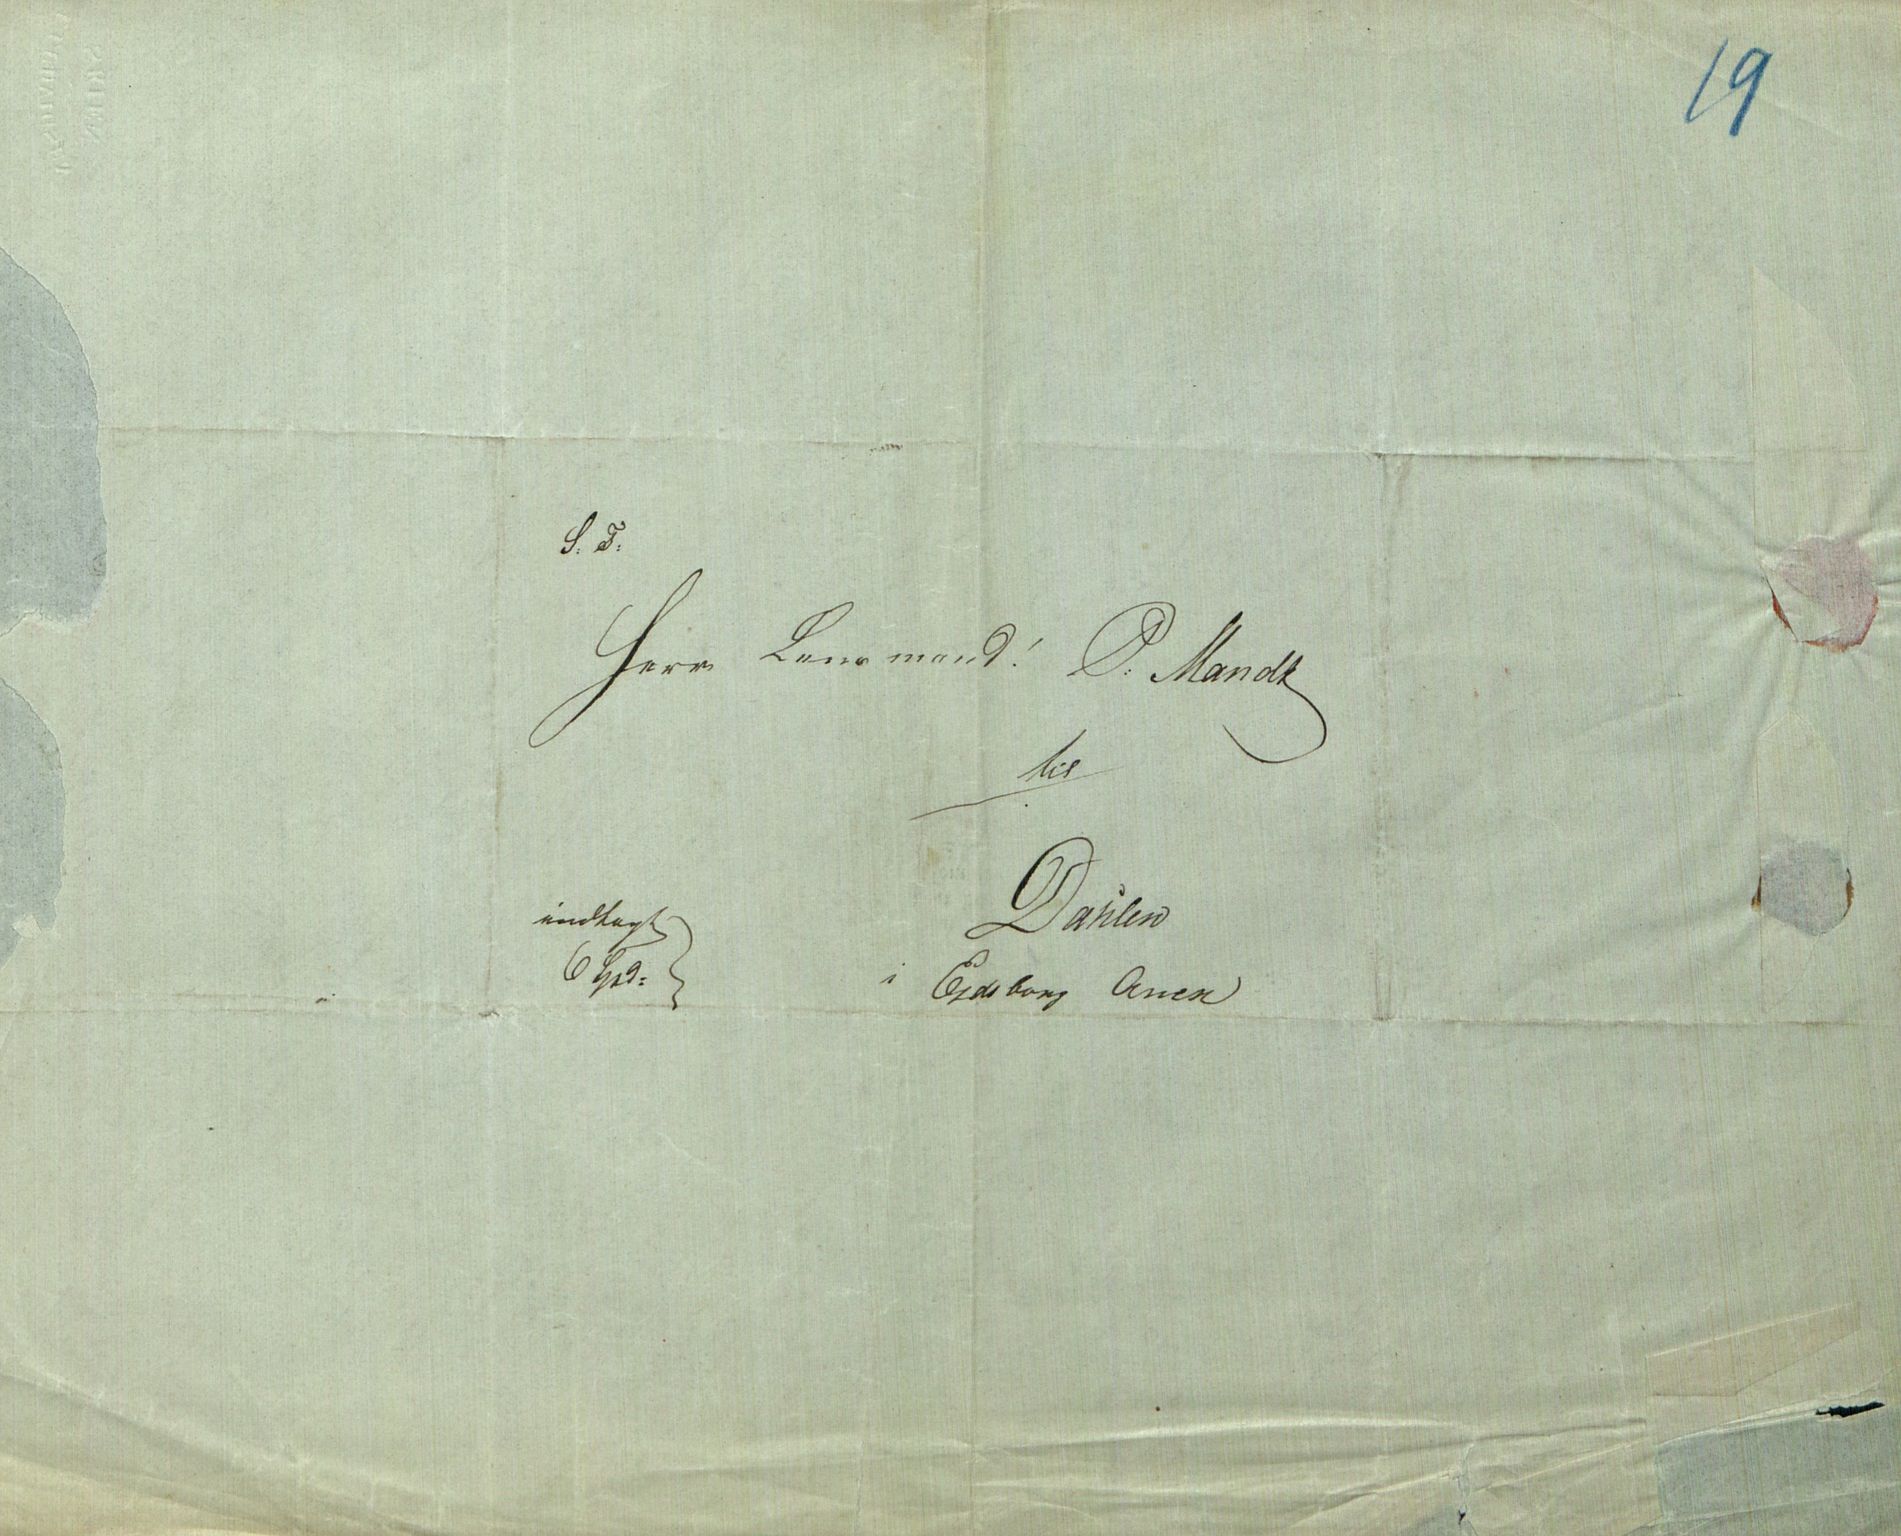 19
S. T.
Herr Lensmand! P. Mandt
til
Dahlen
indlagt
6 Spd:
i Eidsborg Anex